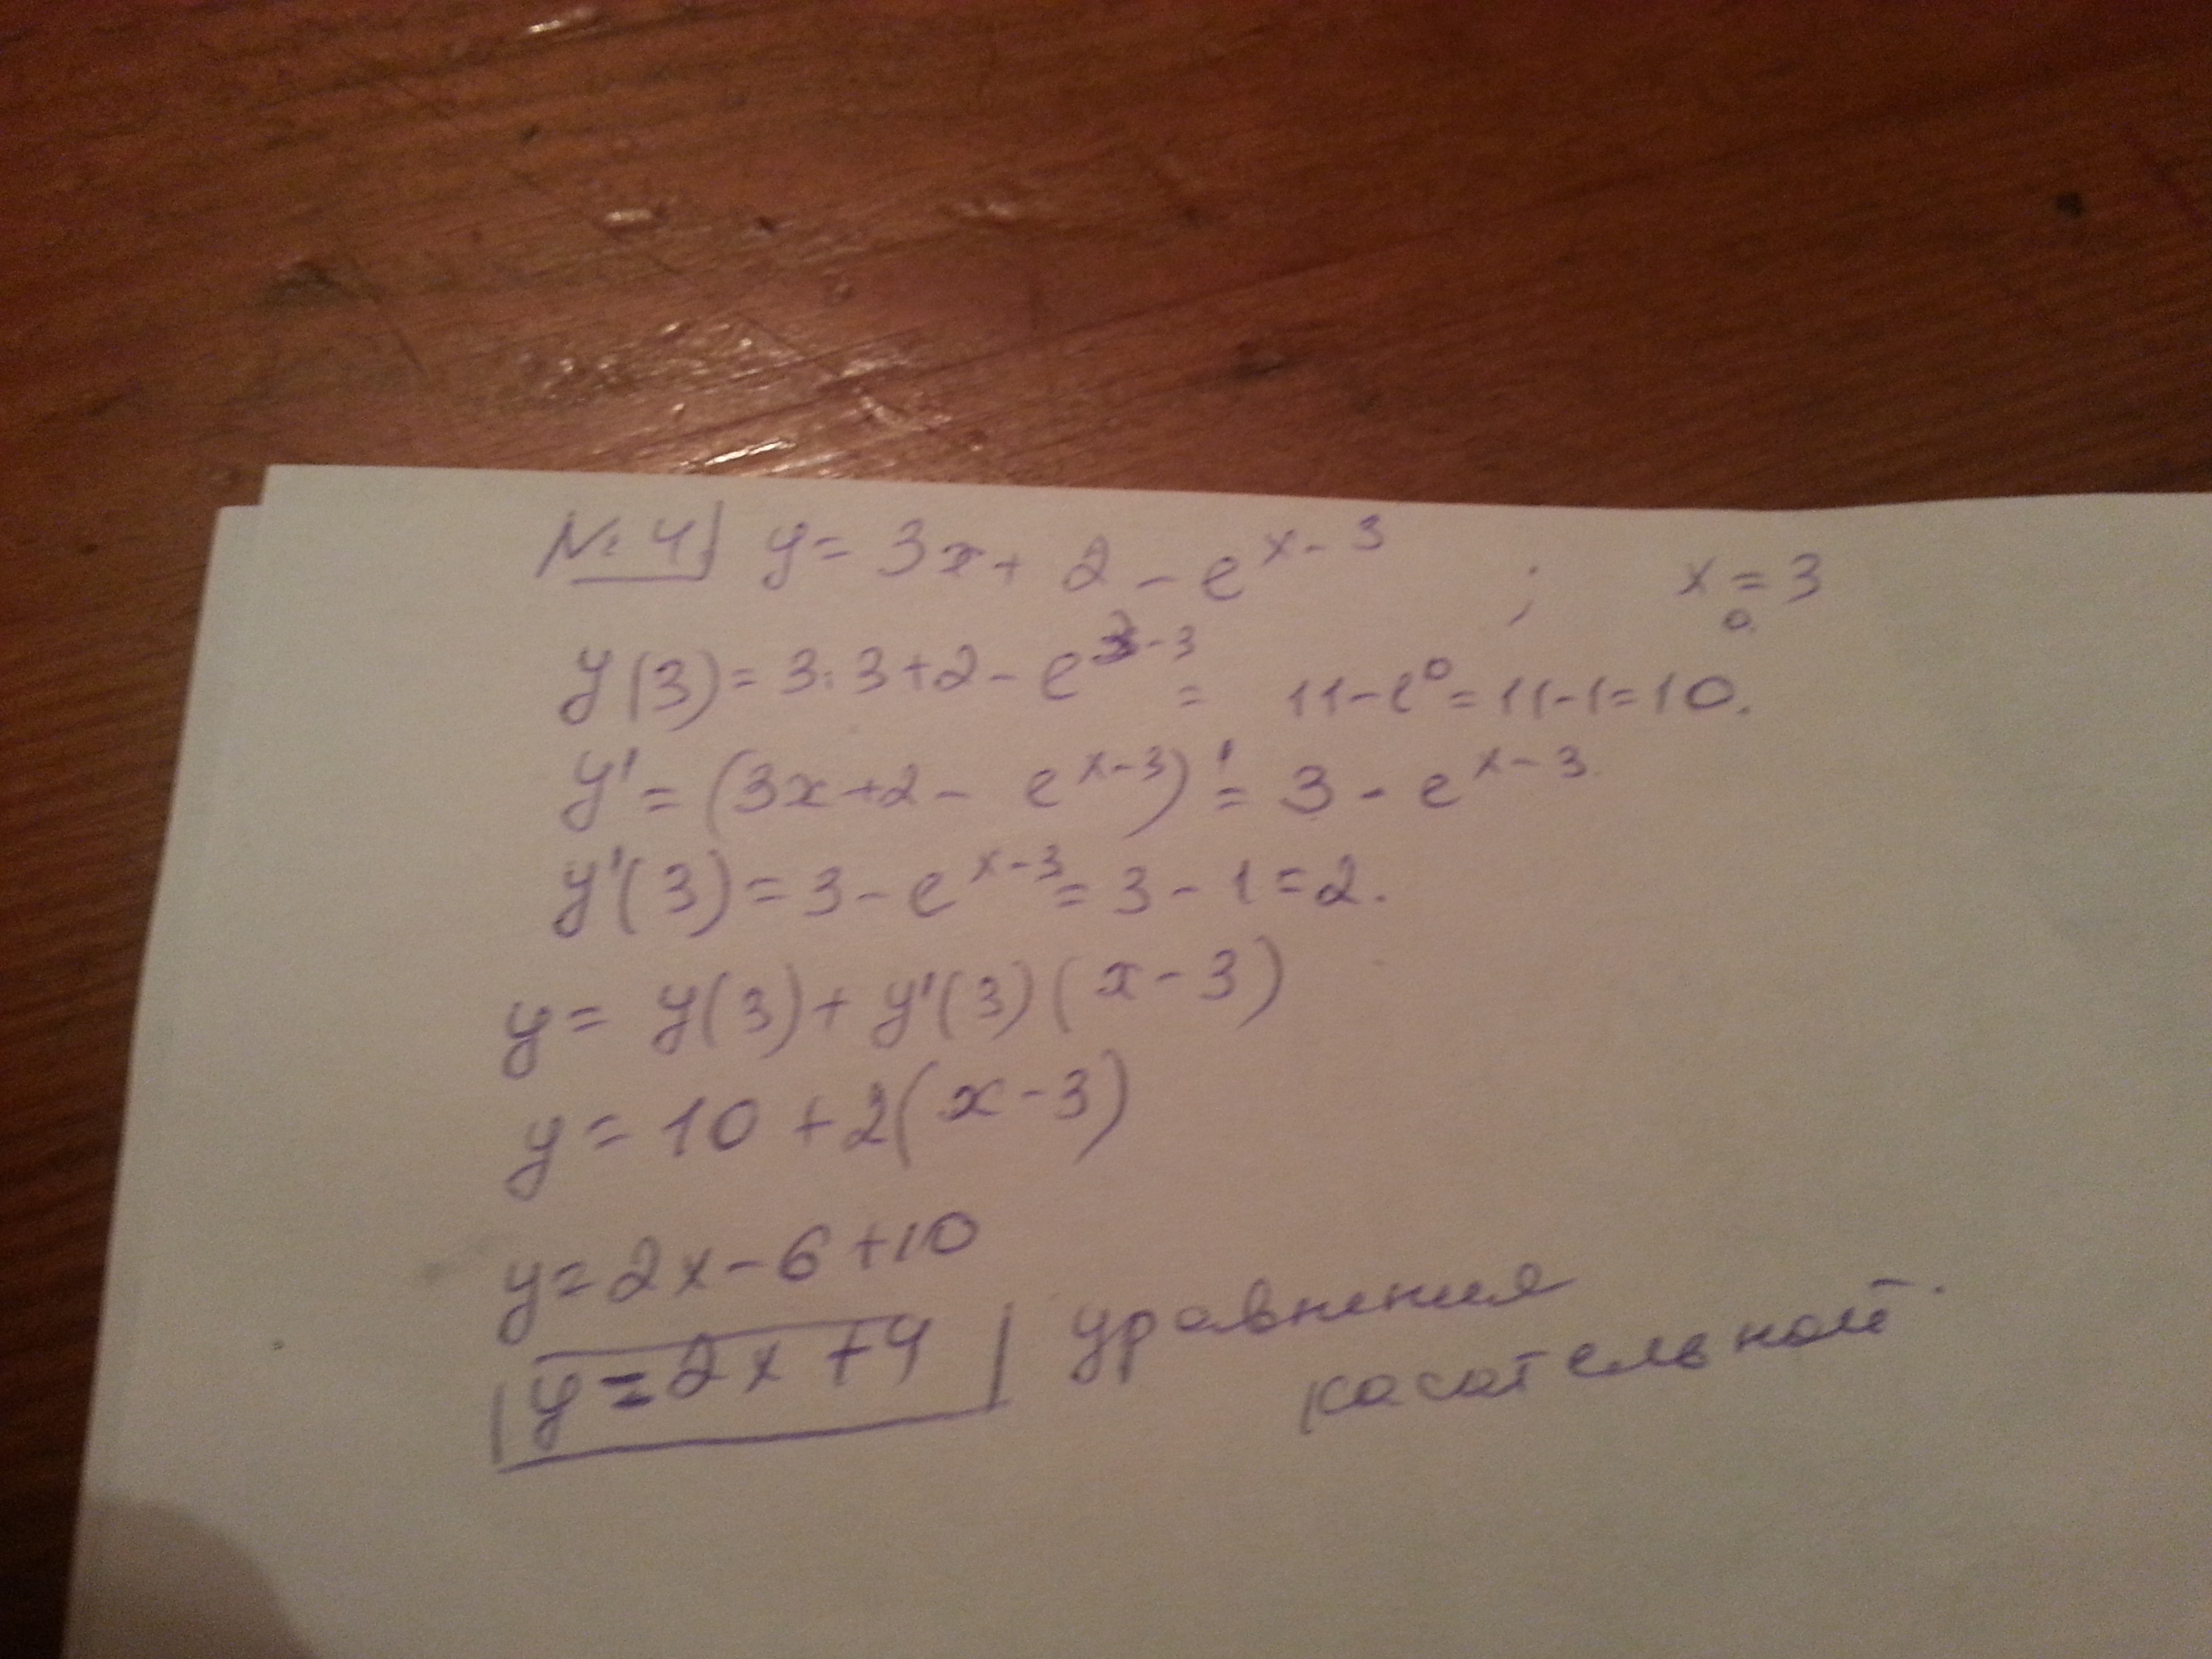 № 4) y = 3x + 2 - e^{x-3} ; x₀ = 3
y(3) = 3·3+2 - e^{3-3} = 11-e⁰ = 11-1=10.
y' = (3x+2 - e^{x-3})' = 3 - e^{x-3}
y'(3) = 3 - e^{x-3} = 3 - 1 = 2.
y = y(3) + y'(3)(x-3)
y = 10 + 2(x-3)
y = 2x - 6 + 10
y = 2x + 4 уравнения
касательной.